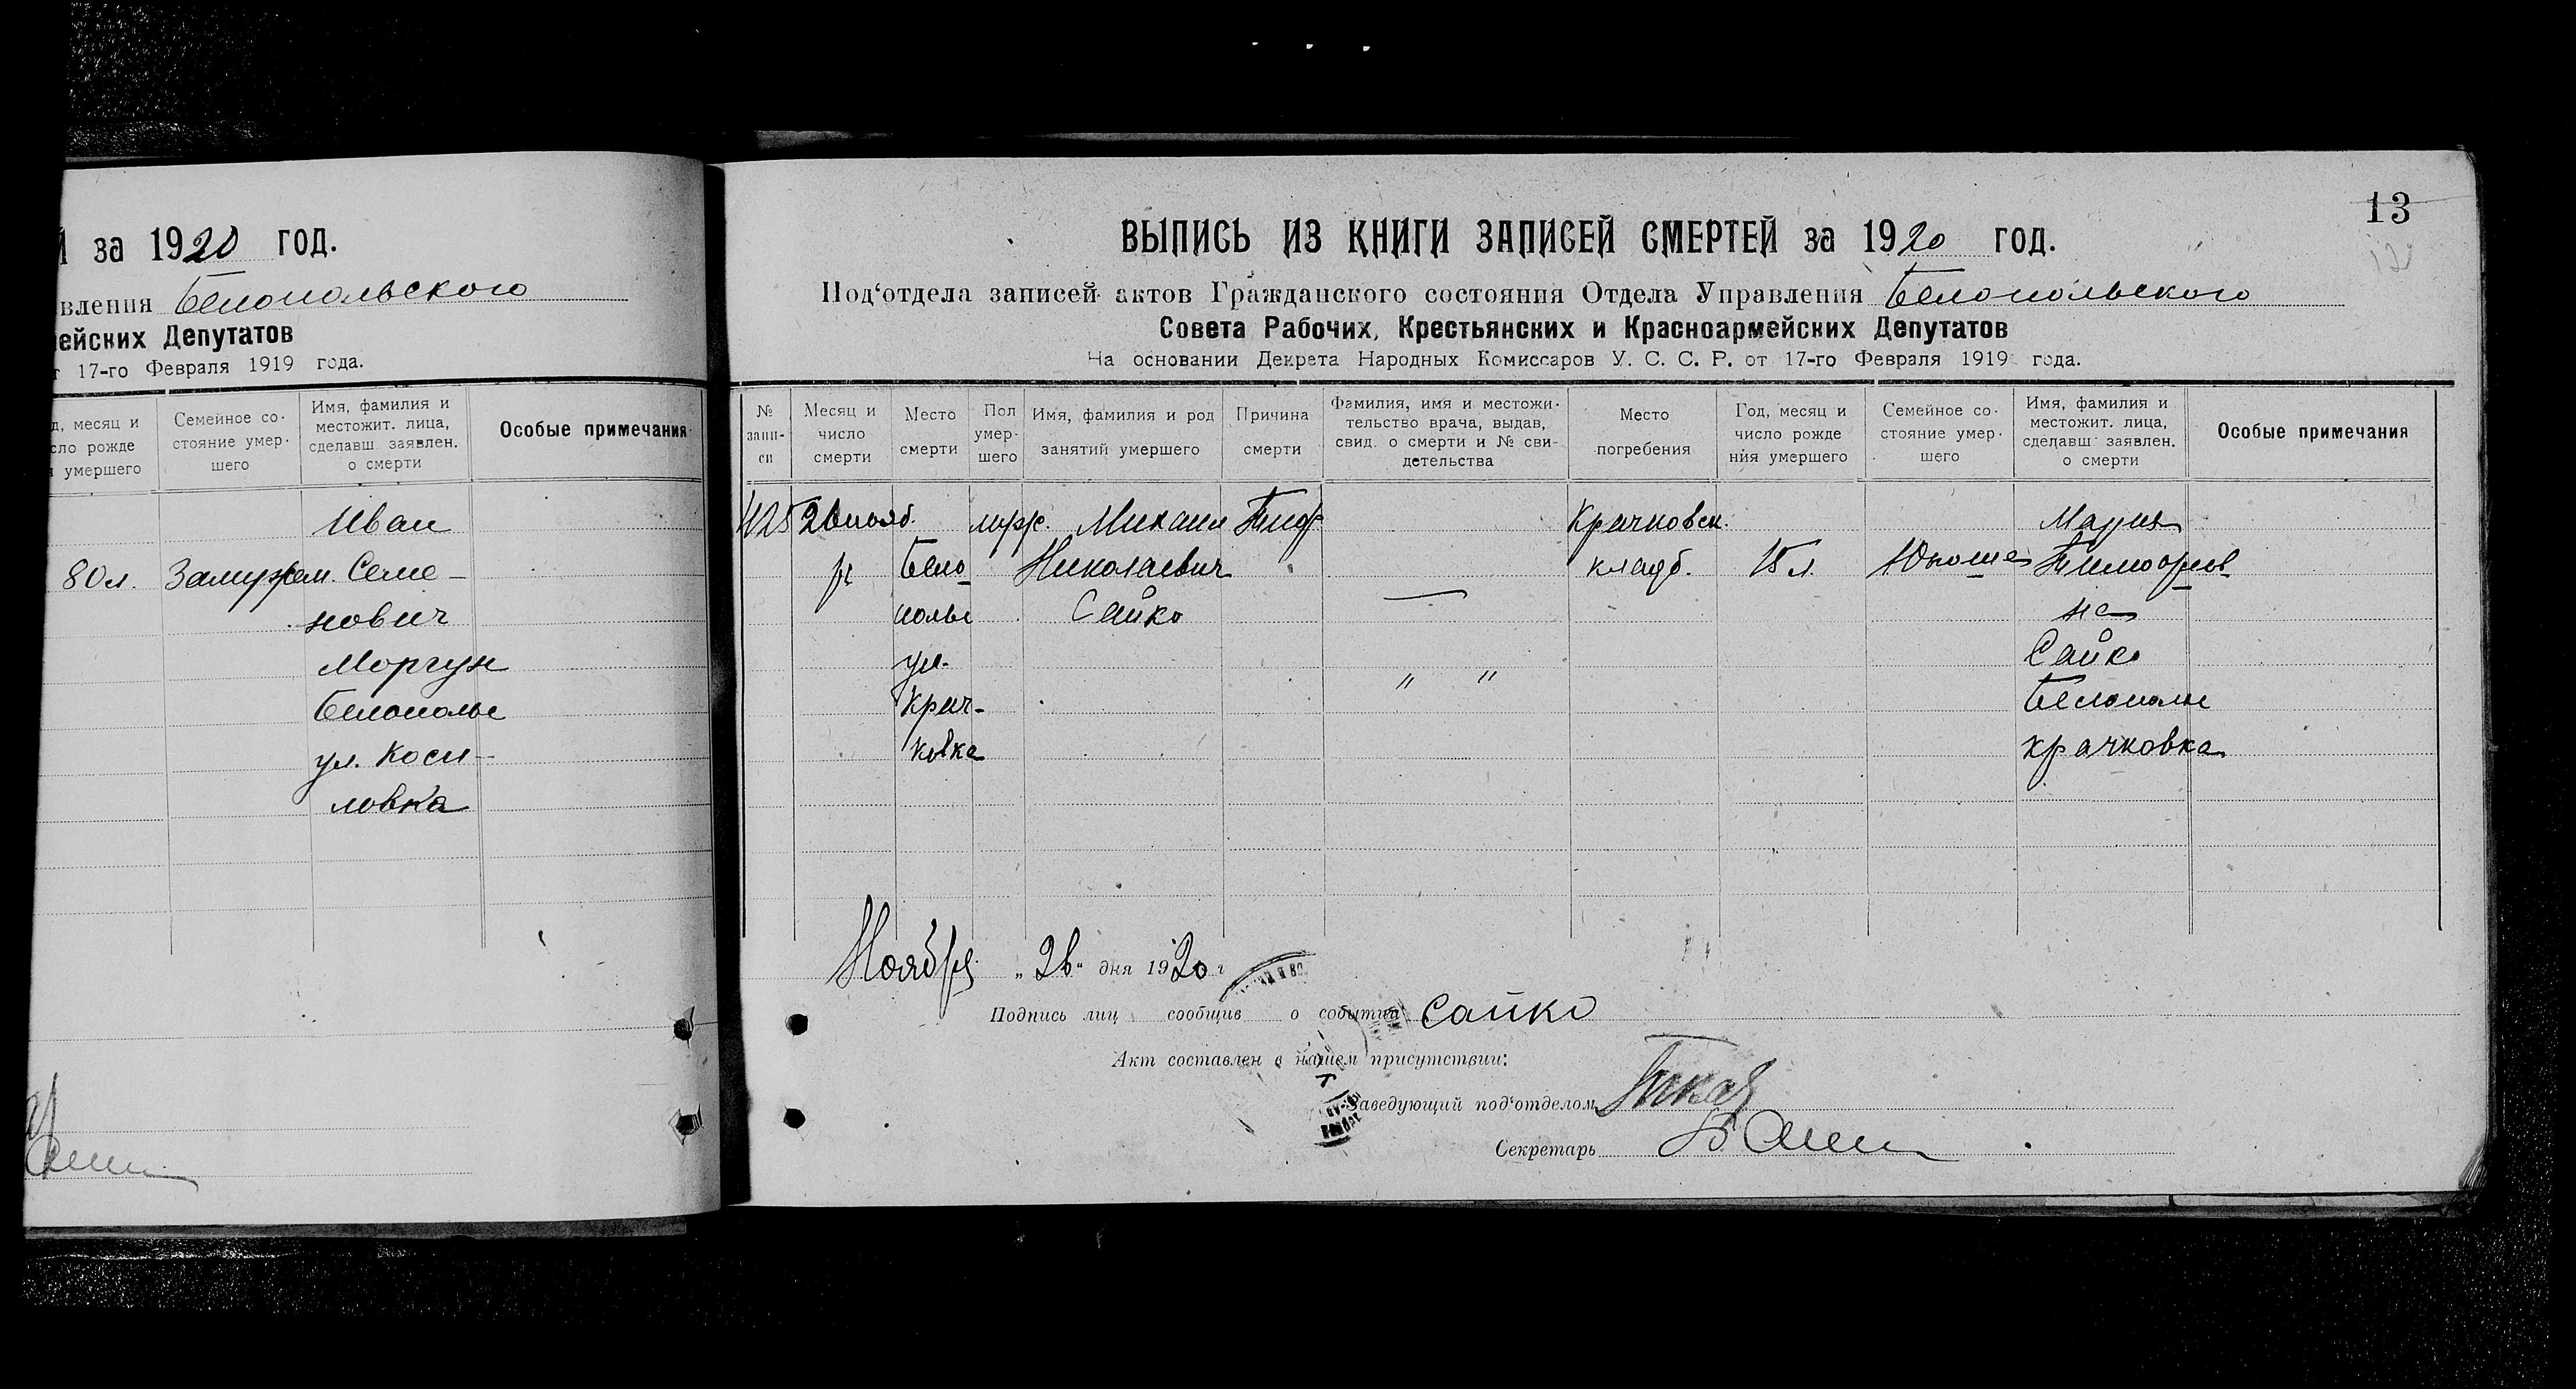 за 1920 год.
вления Белопольского
ейских Депутатов
т 17-го Февраля 1919 года.
д, месяц и
сло рожде
умершего
Семейное со-
стояние умер-
шего
Имя, фамилия и
местожит. лица,
сделавш заявлен.
о смерти
Особые примечания
Иван
80 л. Замужем. Семе-
нович
Моргун
Белополье
ул. Коси-
ловка
13
ВЫПИСЬ ИЗ КНИГИ ЗАПИСЕЙ СМЕРТЕЙ за 1920 год.
Под'отдела записей актов Гражданского состояния Отдела Управления Белопольского
Совета Рабочих, Крестьянских и Красноармейских Депутатов
На основании Декрета Народных Комиссаров У. С. С. Р. от 17-го Февраля 1919 года.
№
запи-
си
Месяц и
число
смерти
Место
смерти
Пол
умер-
шего
Имя, фамилия и род
занятий умершего
Причина
смерти
Фамилия, имя и местожи-
тельство врача, выдав,
свид. о смерти и № сви-
детельства
Место
погребения
Год, месяц и
число рожде
ния умершего
Семейное со-
стояние умер-
шего
Имя, фамилия и
местожит. лица,
сделавш заявлен.
о смерти
Особые примечания
425 26 нояб. муж. Михаил Тиф Крачковск. Мария
ря Бело- Николаевич кладб. 15 л. Юноша Тимофеев-
полье Сайко на
ул. Сайко
Крач- " " Белополье
ковка Крачковка
Ноября „26“ дня 1920 г
Подпись лиц сообщив о событии Сайко
Акт составлен в нашем присутствии:
Заведующий под'отделом
Секретарь